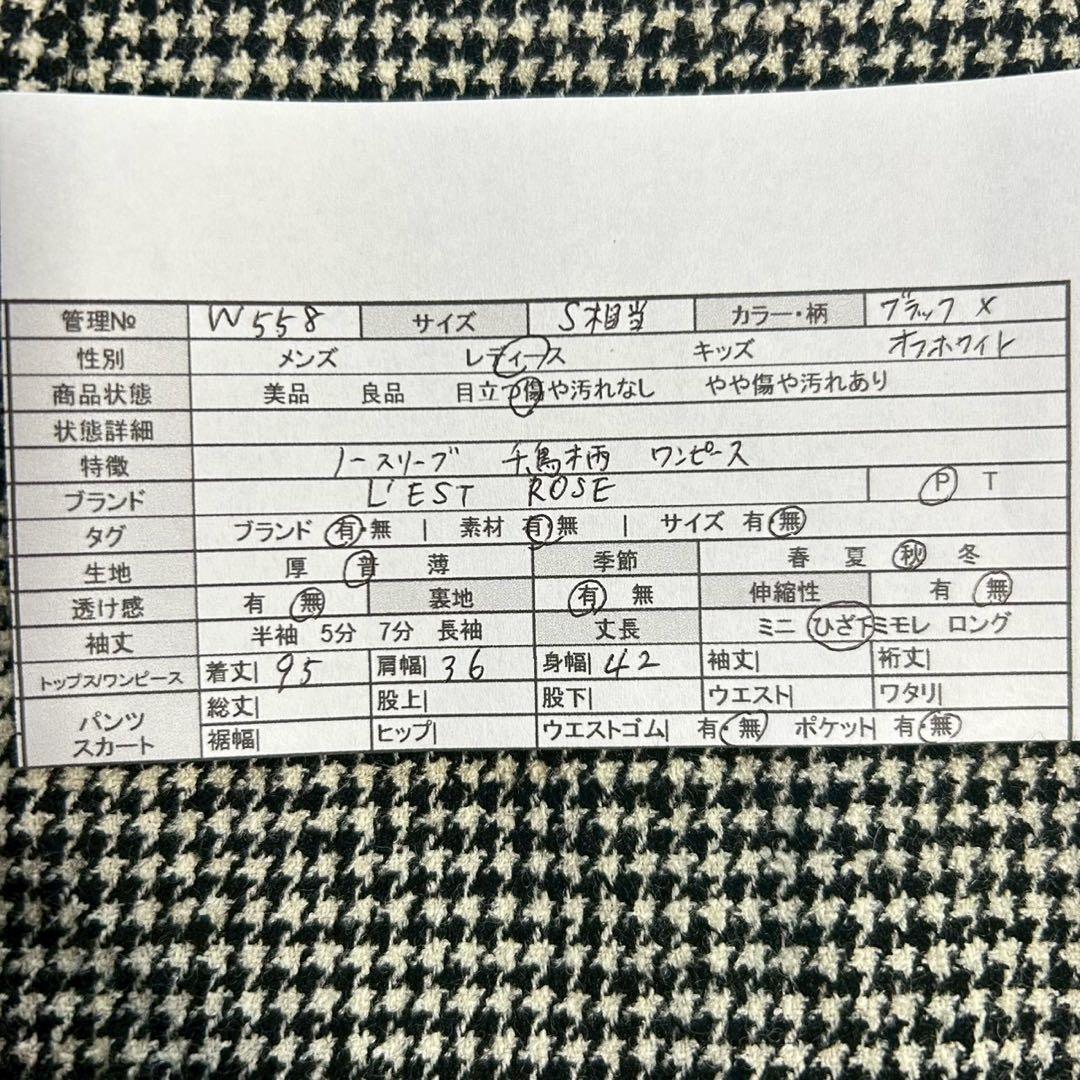 管理№ W558 サイズ S相当 カラー・柄 ブラック×
オフホワイト
性別 メンズ レディース キッズ
商品状態 美品 良品 目立つ傷や汚れなし やや傷や汚れあり
状態詳細
特徴 ノースリーブ 千鳥柄 ワンピース
ブランド L'EST ROSE P T
タグ ブランド 有・無 | 素材 有・無 | サイズ 有・無
生地 厚 普 薄 季節 春 夏 秋 冬
透け感 有 無 裏地 有 無 伸縮性 有 無
袖丈 半袖 5分 7分 長袖 丈長 ミニ ひざ下 ミモレ ロング
トップス/ワンピース 着丈| 95 肩幅| 36 身幅| 42 袖丈| 裄丈|
パンツ スカート 総丈| 股上| 股下| ウエスト| ワタリ|
裾幅| ヒップ| ウエストゴム| 有・無 ポケット| 有・無